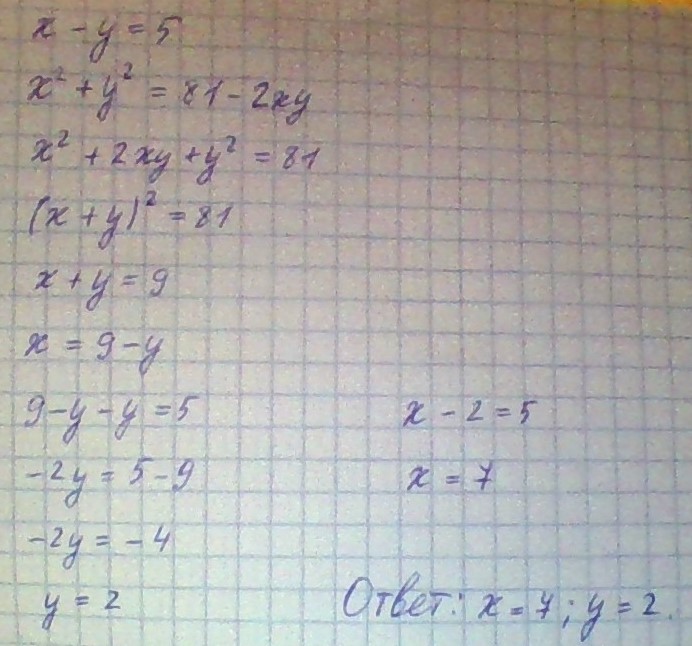 x - y = 5
x² + y² = 81 - 2xy
x² + 2xy + y² = 81
(x + y)² = 81
x + y = 9
x = 9 - y
9 - y - y = 5
-2y = 5 - 9
-2y = -4
y = 2
x - 2 = 5
x = 7
Ответ: x = 7; y = 2.